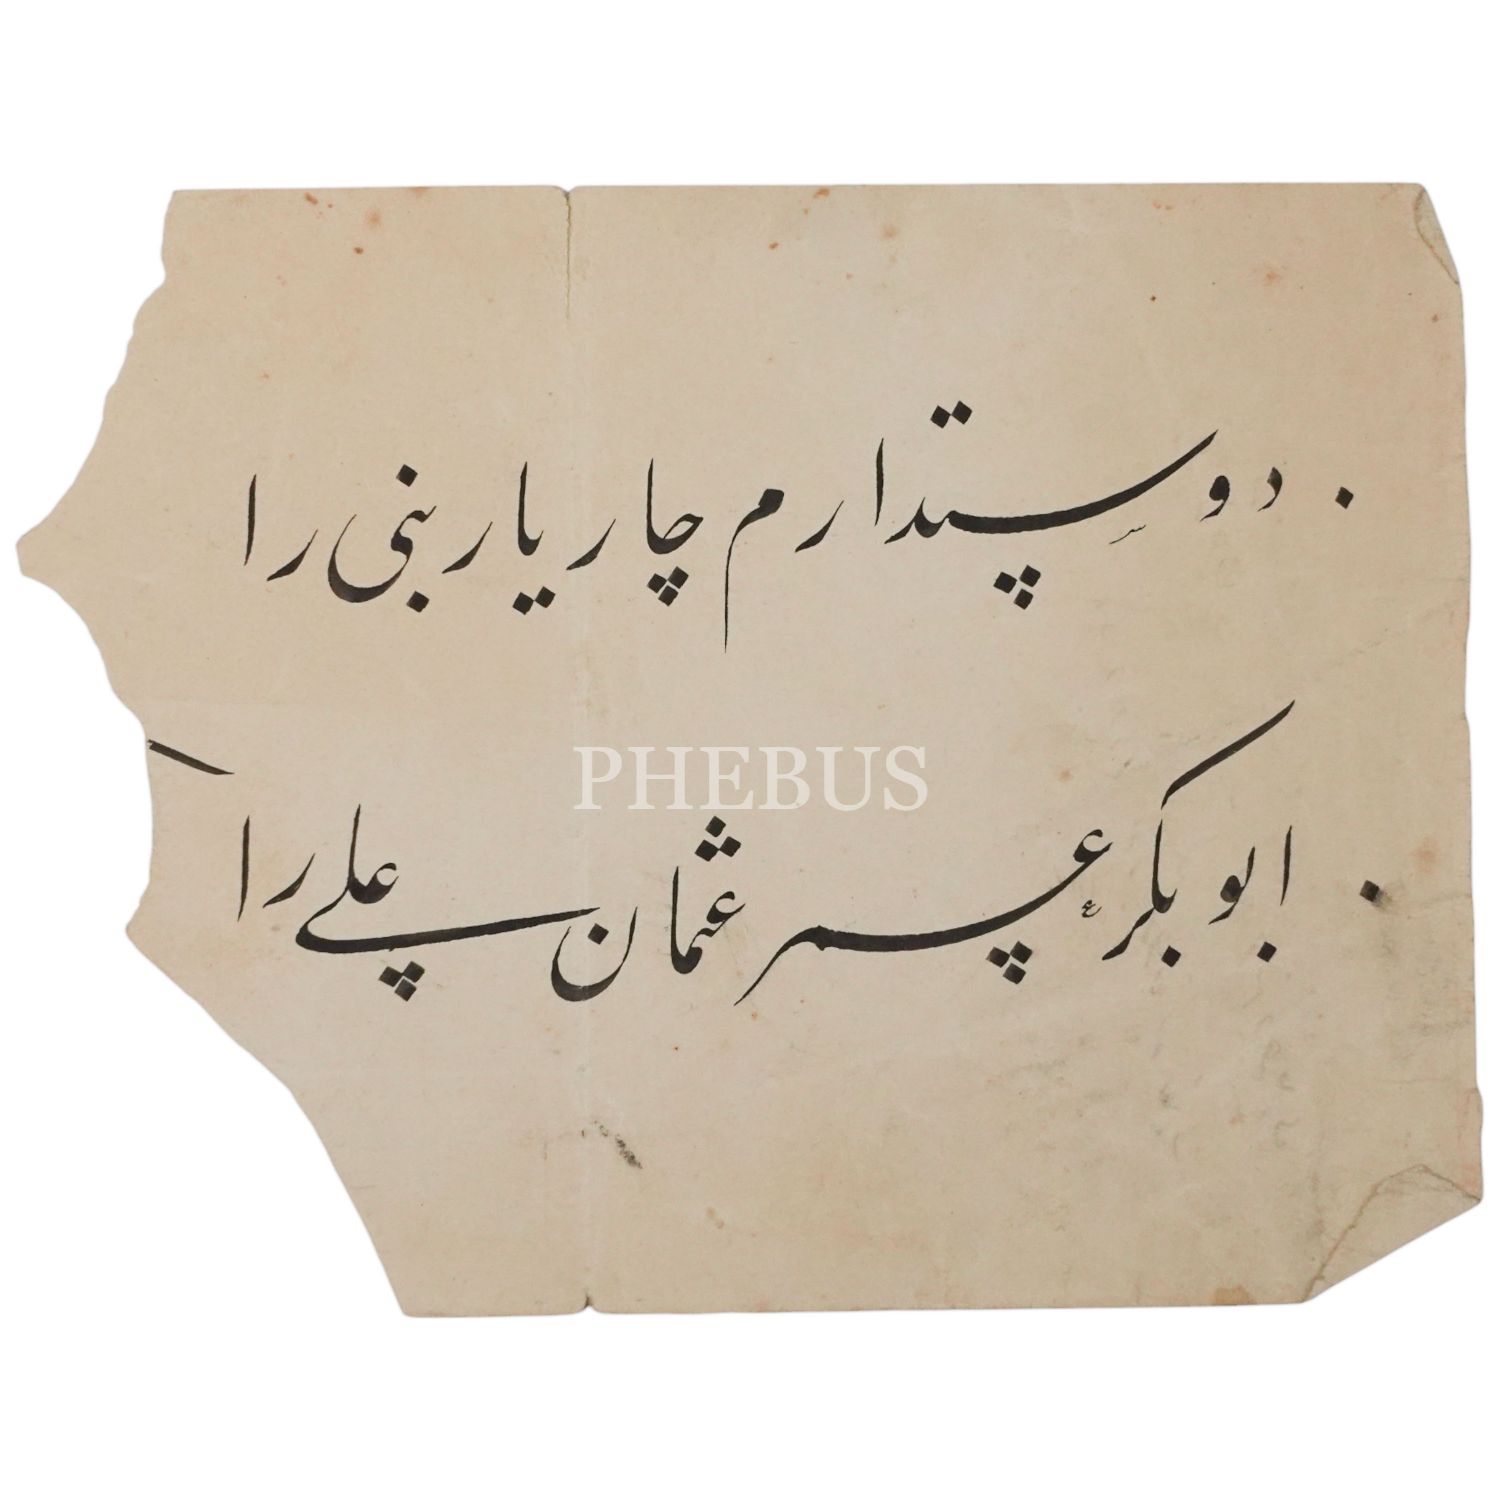 دوستدارم چار یار نبی را
PHEBUS
ابو بکر عمر عثمان علی را